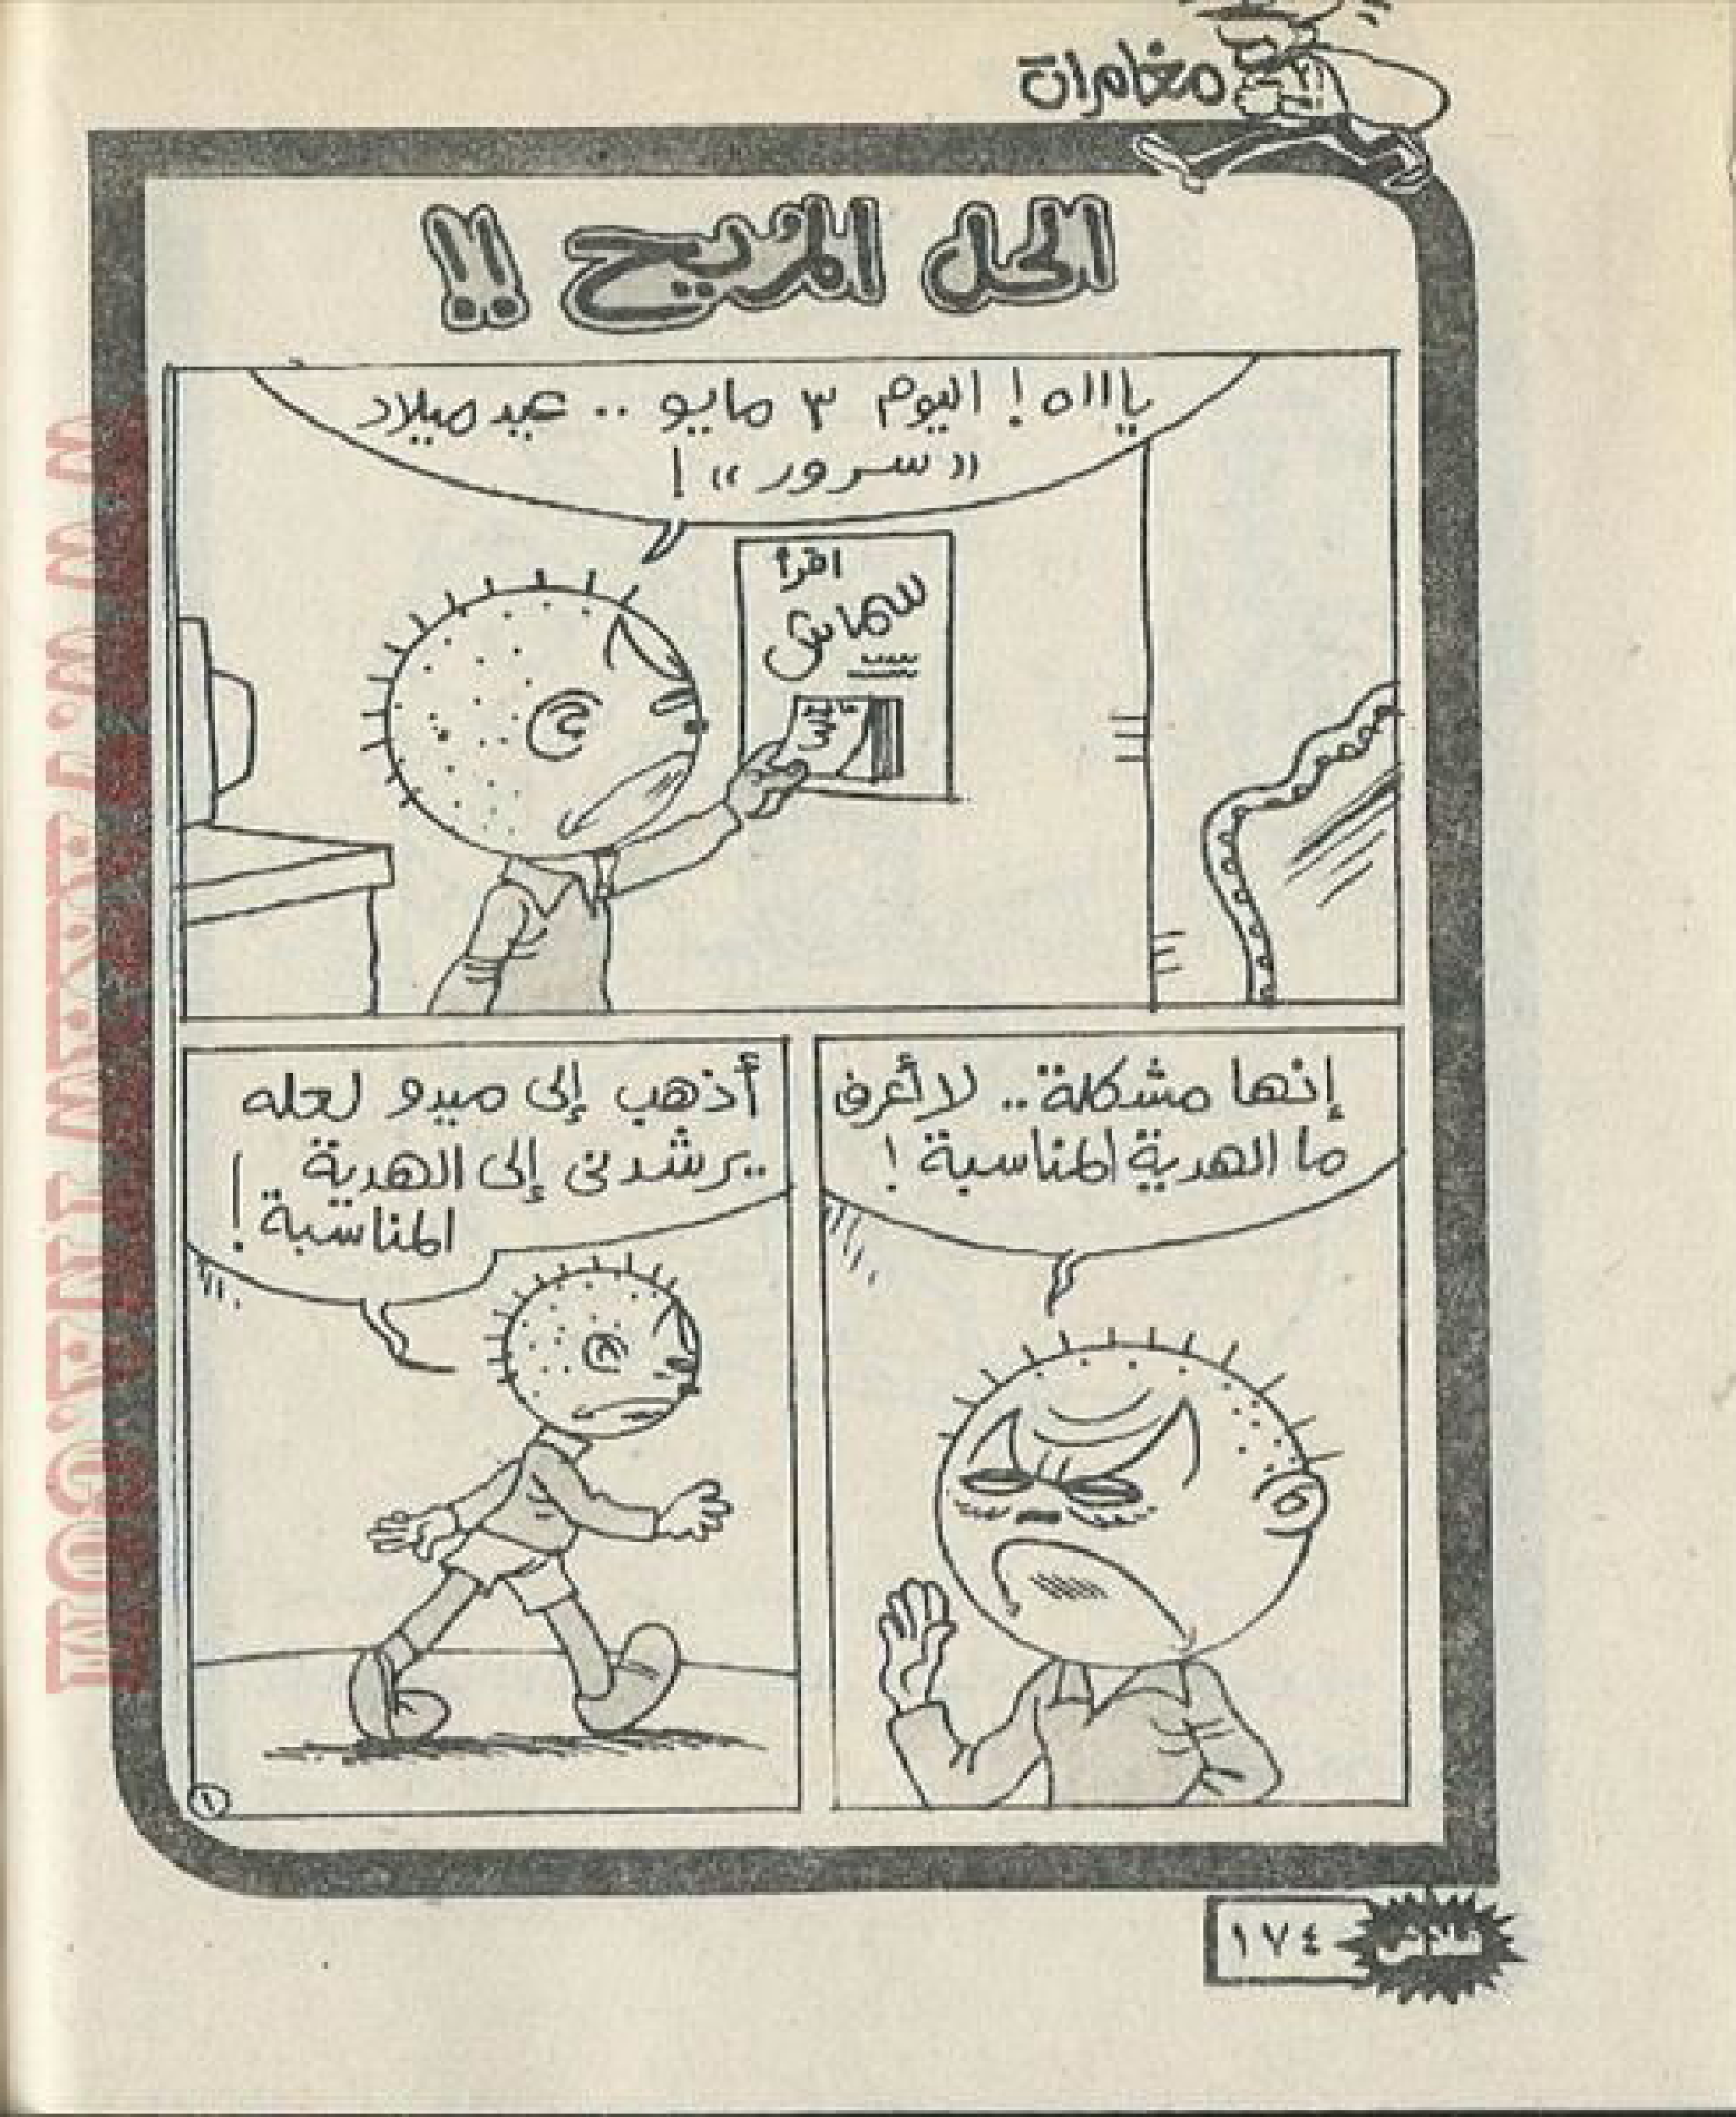 مغامرات
الحل المريح !!
يااااه ! اليوم ٣ مايو .. عيد ميلاد
« سرور » !
اقرأ
سماش
إنها مشكلة .. لا أعرف
ما الهدية المناسبة !
أذهب إلى ميدو لعله
يرشدنى إلى الهدية
المناسبة !
١
١٧٤